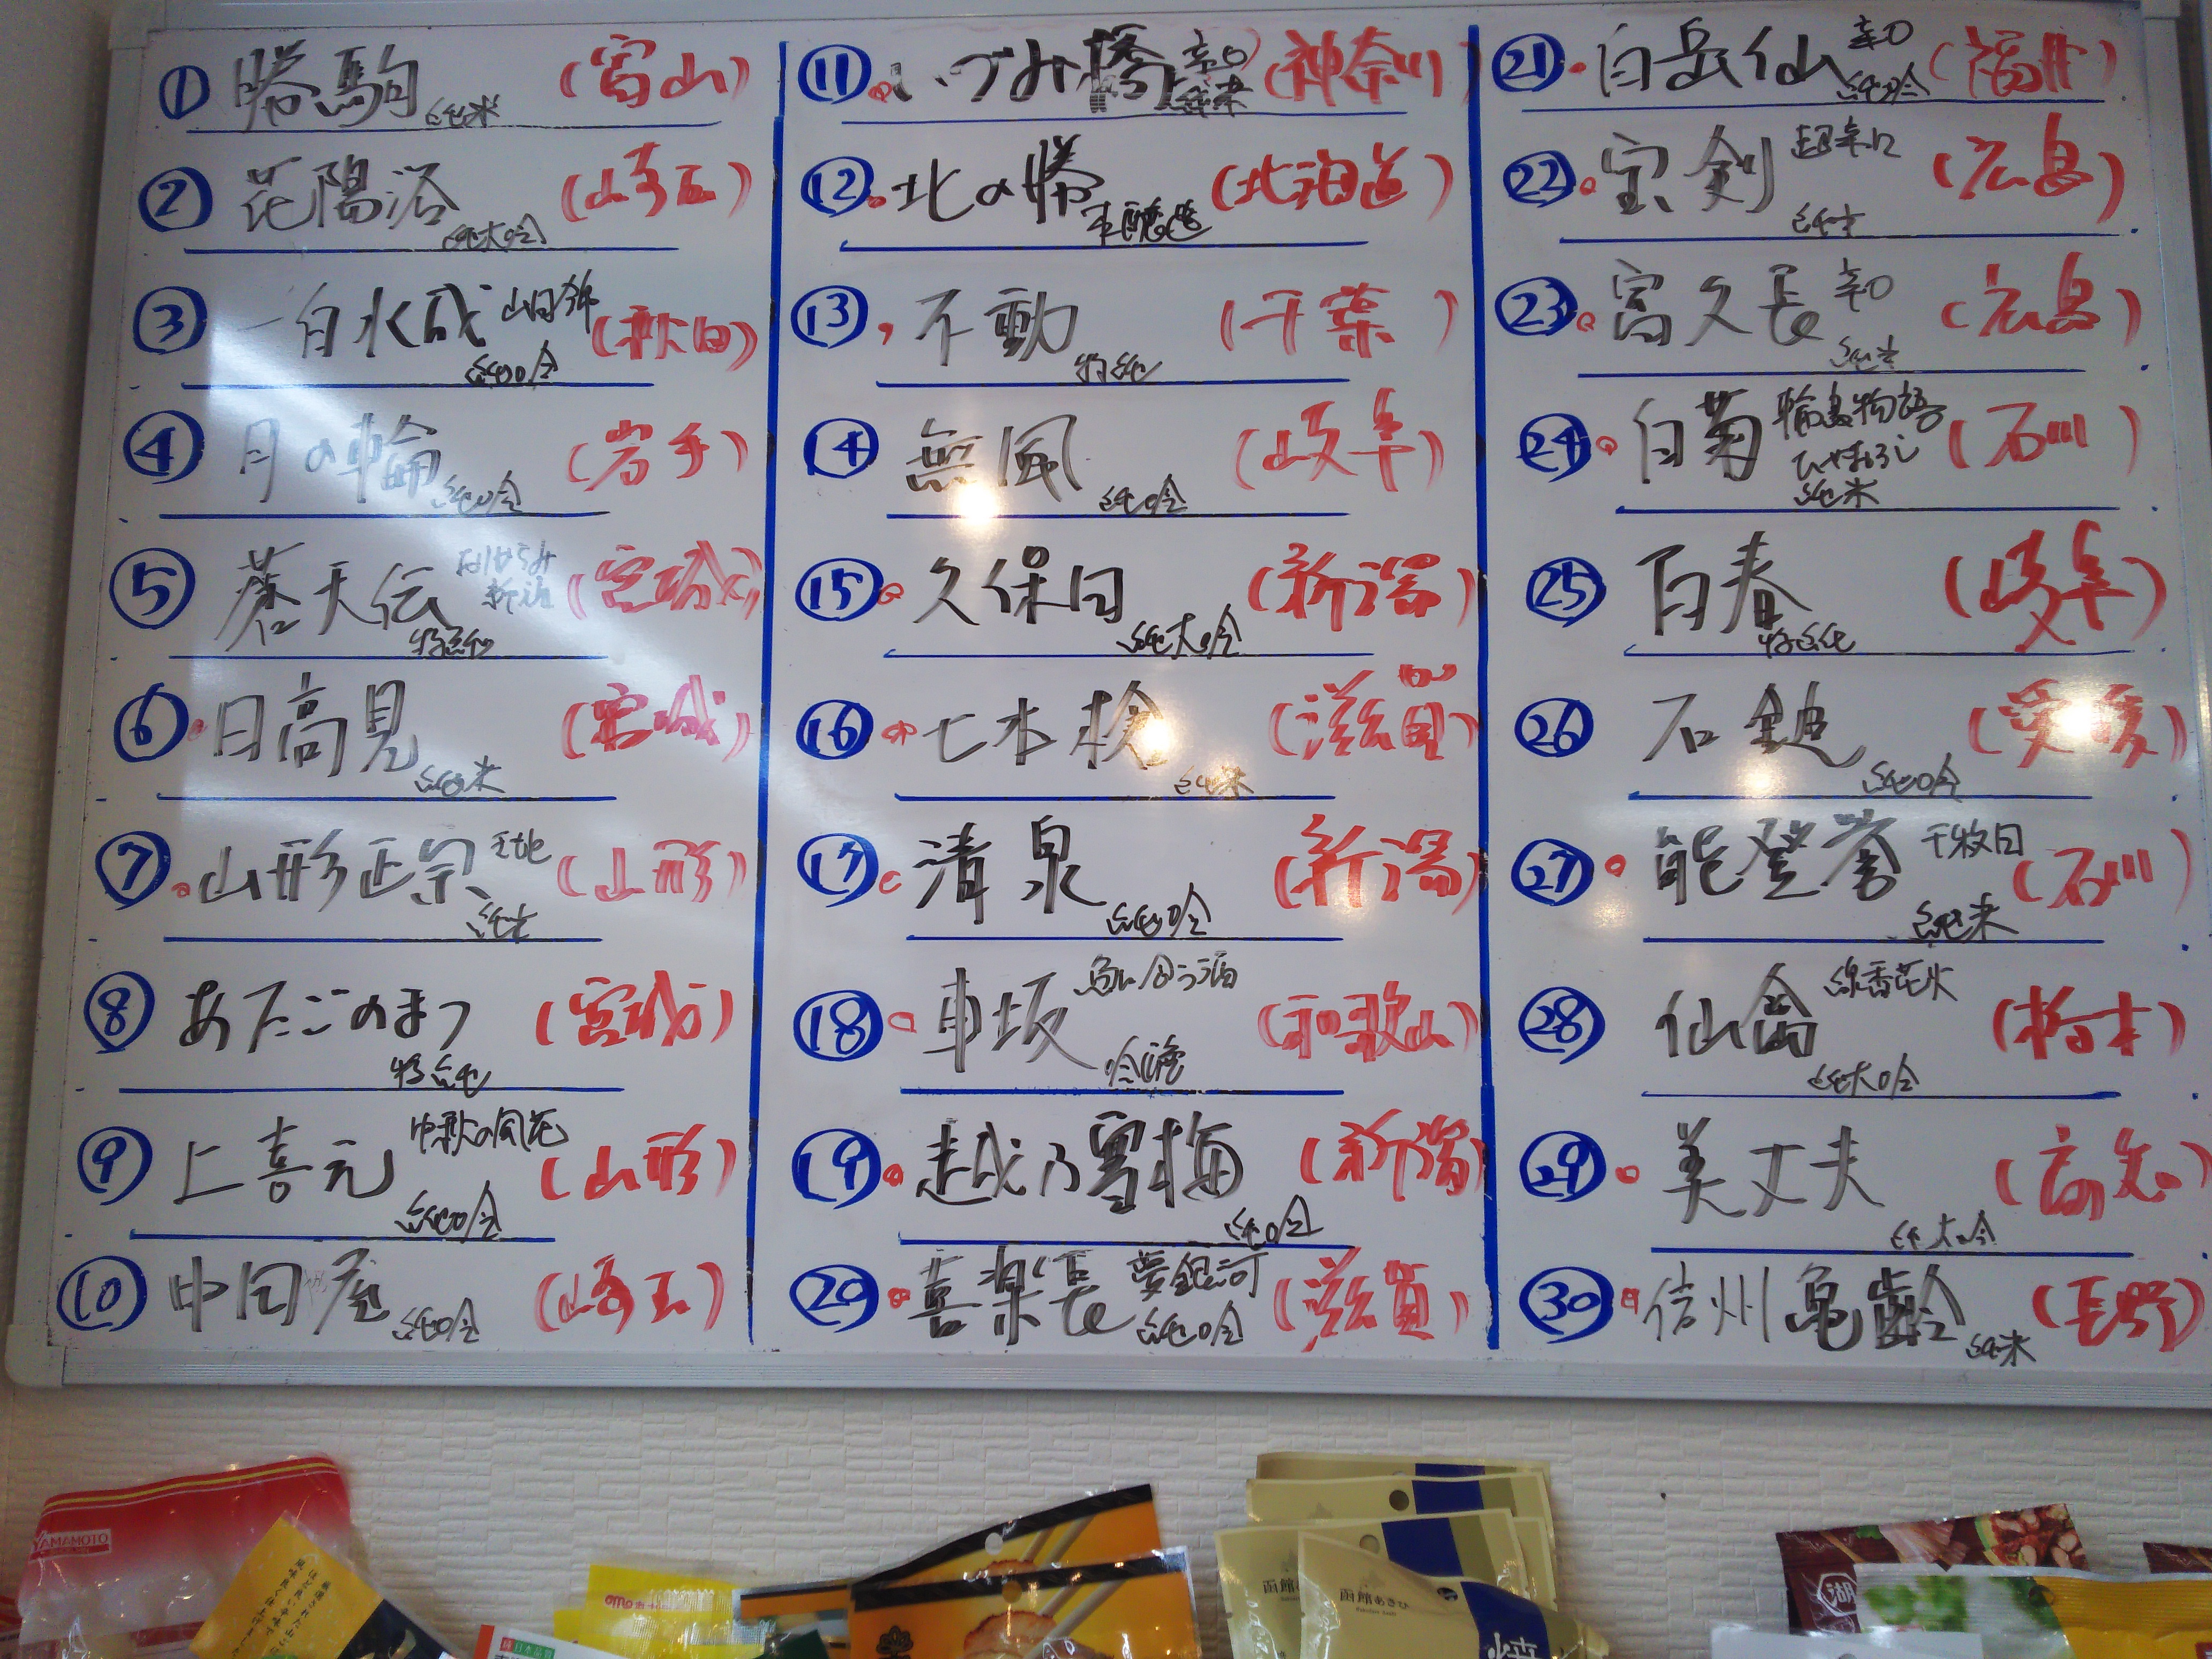 ① 勝駒 純米 (富山)
② 花陽浴 純大吟 (埼玉)
③ 一白水成 山田錦 純吟 (秋田)
④ 月の輪 純吟 (岩手)
⑤ 蒼天伝 おりがらみ 新酒 特純 (宮城)
⑥ 日高見 純米 (宮城)
⑦ 山形正宗 純米 (山形)
⑧ あたごのまつ 特純 (宮城)
⑨ 上喜元 中秋の風花 純吟 (山形)
⑩ 中田屋 純吟 (埼玉)
⑪ いづみ橋 辛口 純米 (神奈川)
⑫ 北の勝 本醸造 (北海道)
⑬ 不動 特純 (千葉)
⑭ 無風 純吟 (岐阜)
⑮ 久保田 純大吟 (新潟)
⑯ 七本槍 純米 (滋賀)
⑰ 清泉 純吟 (新潟)
⑱ 車坂 魚に合う酒 吟醸 (和歌山)
⑲ 越乃雪梅 純吟 (新潟)
⑳ 喜楽長 夢銀河 純吟 (滋賀)
㉑ 白岳仙 辛口 純吟 (福井)
㉒ 宝剣 超辛口 純米 (広島)
㉓ 富久長 辛口 純米 (広島)
㉔ 白菊 輪島物語 ひやおろし 純米 (石川)
㉕ 百春 特純 (岐阜)
㉖ 石鎚 純吟 (愛媛)
㉗ 能登誉 千枚田 純米 (石川)
㉘ 仙禽 線香花火 純大吟 (栃木)
㉙ 美丈夫 純大吟 (高知)
㉚ 信州亀齢 純米 (長野)
YAMAMOTO
函館あさひ
湖